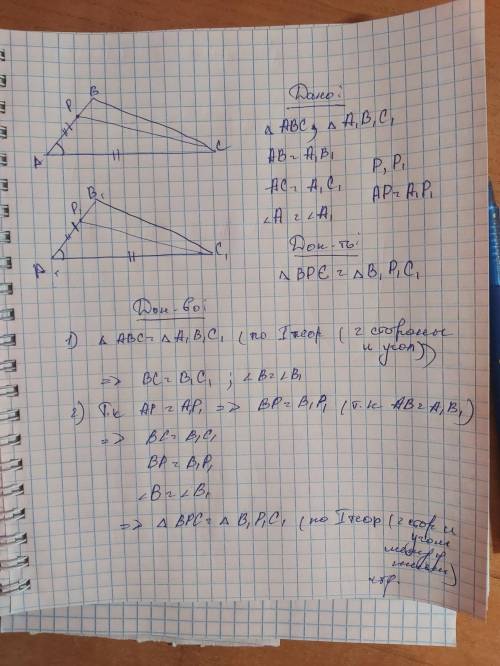 B
P
A
C
B₁
P₁
A₁
C₁
Дано:
△ ABC, △ A₁B₁C₁
AB = A₁B₁
AC = A₁C₁
∠A = ∠A₁
P, P₁
AP = A₁P₁
Док-ть:
△ BPC = △ B₁P₁C₁
Док-во:
1) △ ABC = △ A₁B₁C₁ (по I теор (2 стороны
и угол))
=> BC = B₁C₁ ; ∠B = ∠B₁
2) Т.к AP = AP₁ => BP = B₁P₁ (т.к AB = A₁B₁)
=> BC = B₁C₁
BP = B₁P₁
∠B = ∠B₁
=> △ BPC = △ B₁P₁C₁ (по I теор (2 стор и
углом
между
ними)
чтр.